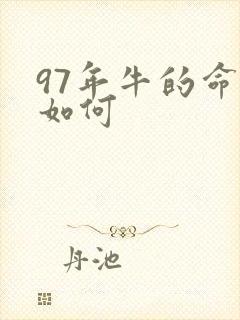 97年牛的命
如何
丹池